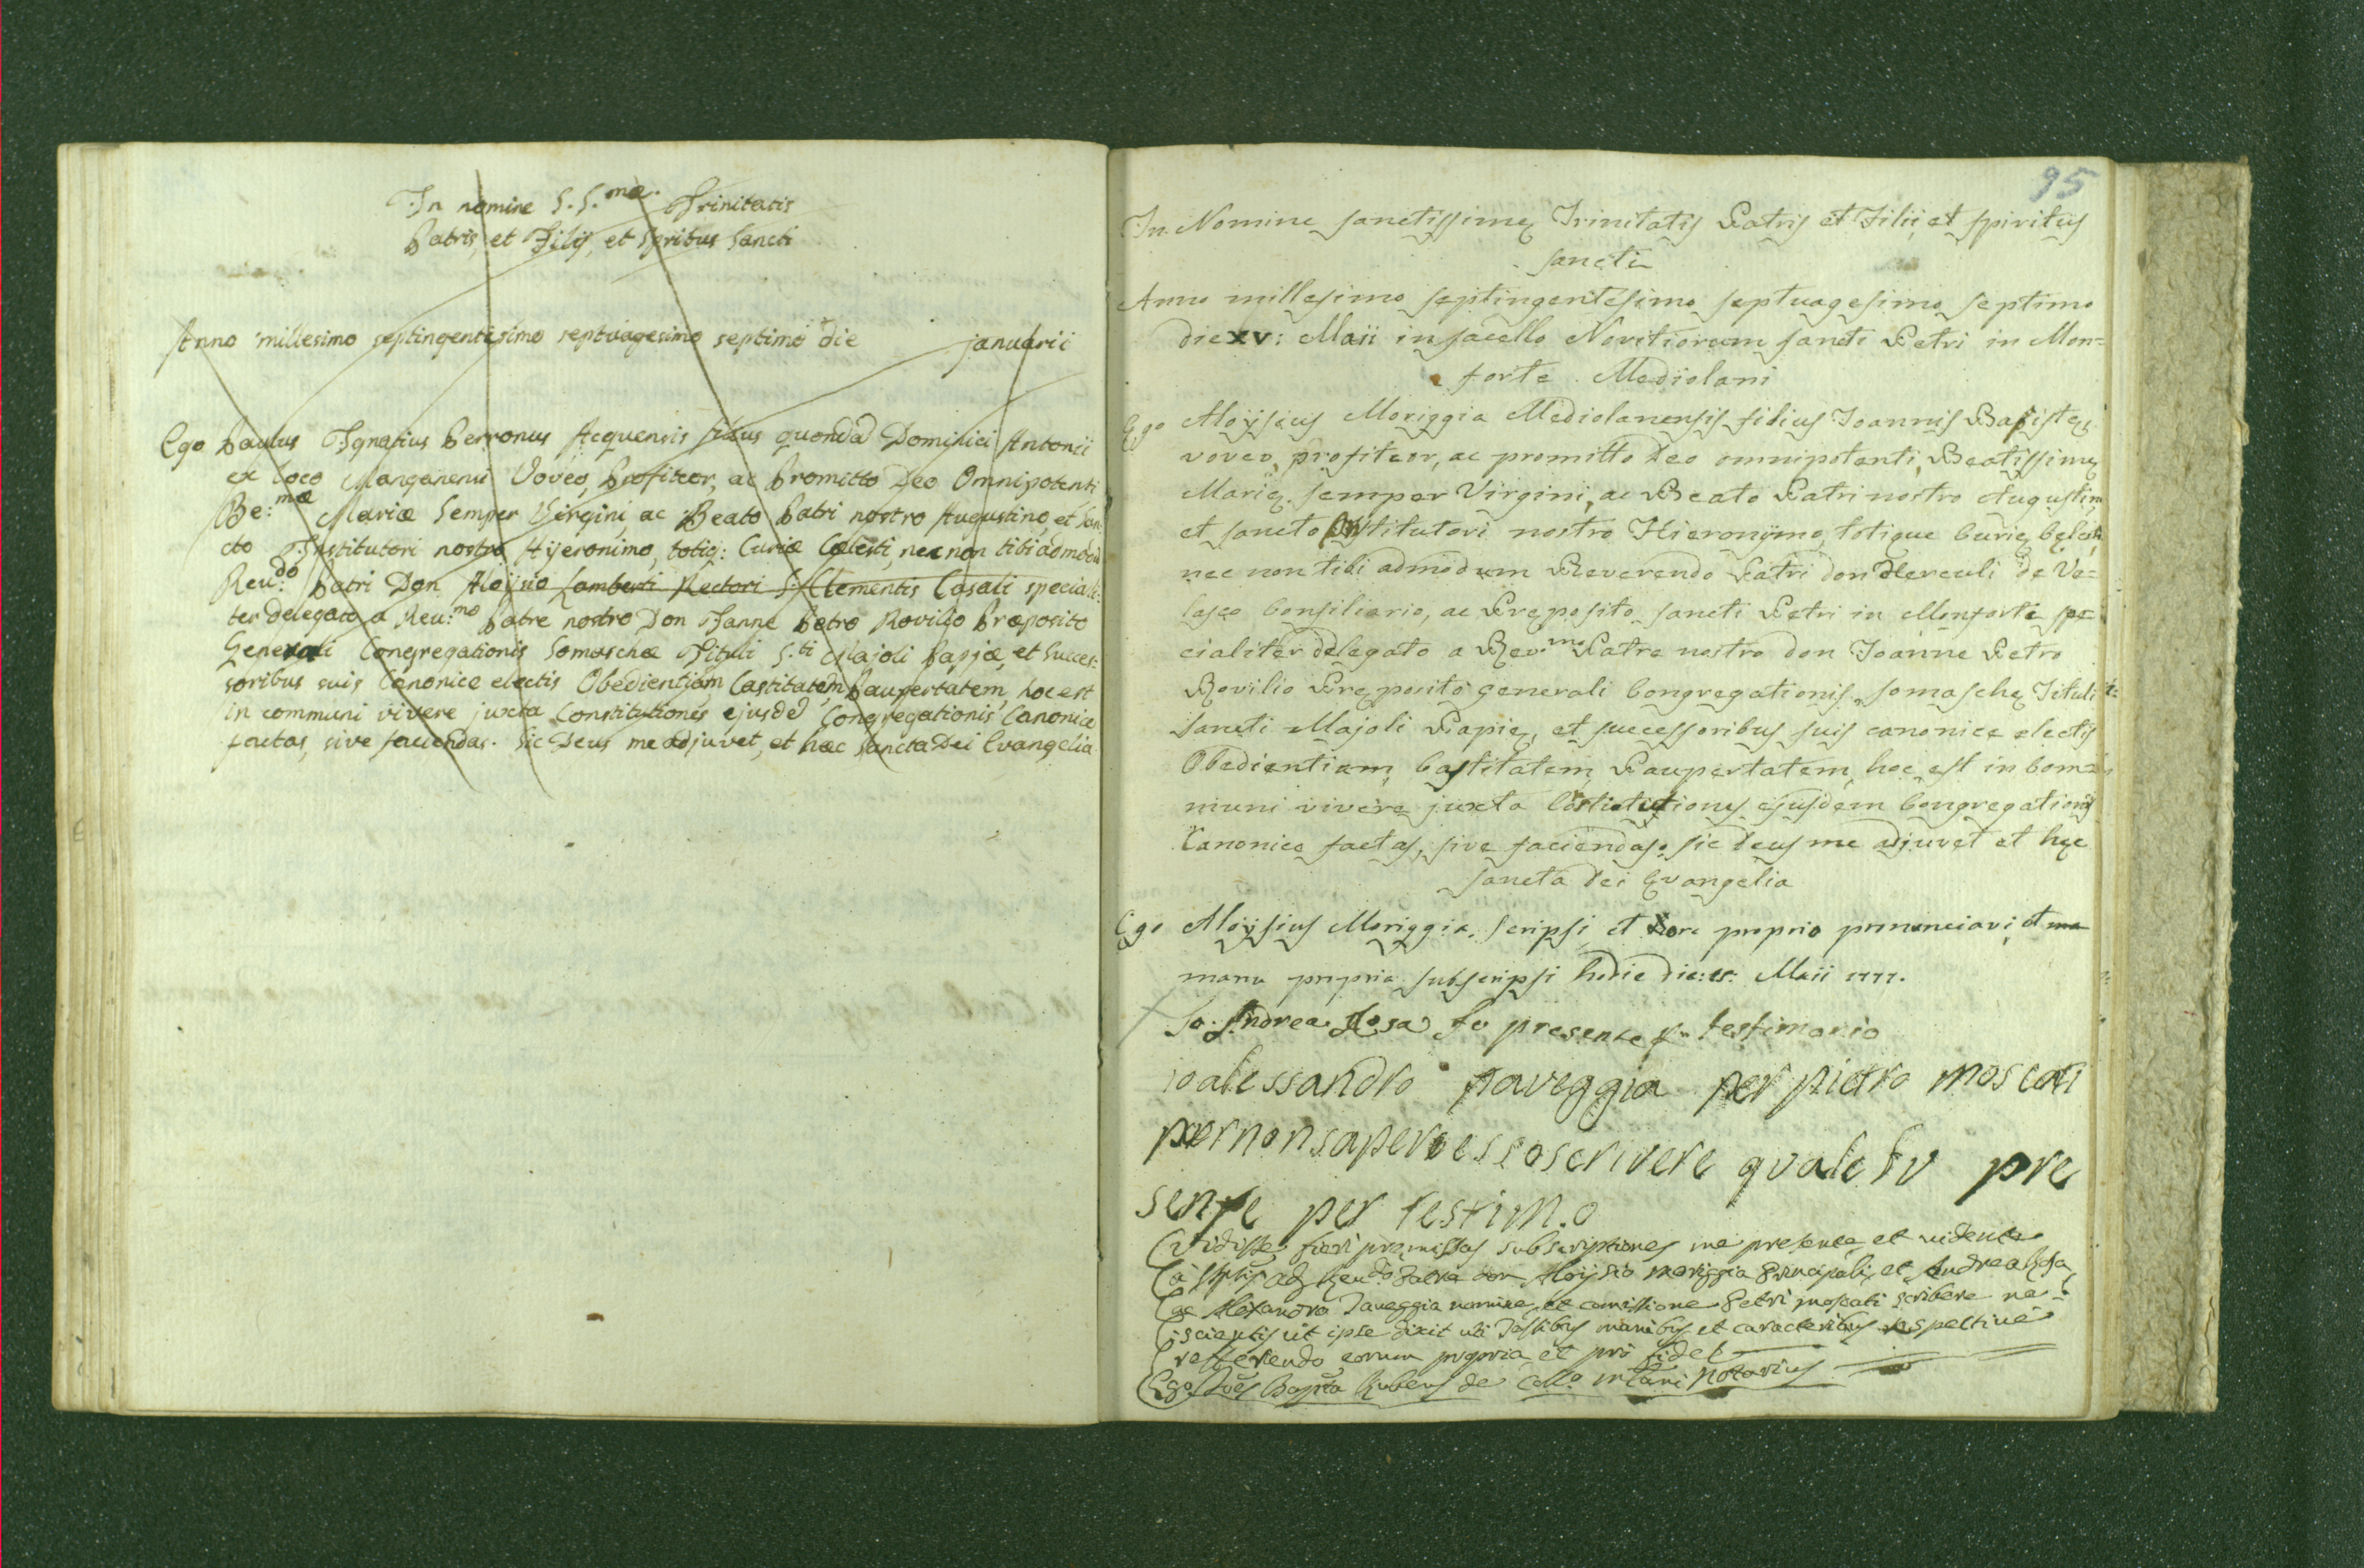 In nomine S. S.mæ Trinitatis
Patris, et Filij, et Spritus Sancti
Anno millesimo septingentesimo septuagesimo septimo die januarii
Ego Paulus Ignatius Perronus Acquensis filius quondã Dominici Antonii
ex loco Voveo, Profiteor, ac Promitto Deo Omnipotenti
Be:mæ Mariæ Semper Virgini ac Beato Patri nostro Augustino, et San-
cto Institutori nostro Hijeronimo, totiq: Curiæ Cælesti, nec non tibi admodũ
Reu:do Patri Don Aloijsio Lamberti Rectori S. Clementis Casali speciali-
ter delegato a Reu:mo Patre nostro Don Joanne Petro Rovilio Præposito
Generali Congregationis Somaschæ Tituli S.ti Majoli Papiæ, et Succes-
soribus suis Canonice electis Obedientiam Castitatem, Paupertatem, hoc est
in communi vivere juxta Constitutiones ejusdẽ Congregationis Canonice
factas, sive faciendas. Sic Deus me adjuvet, et hæc Sancta Dei Evangelia
95
In Nomine sanctissimę Trinitatis Patris et Filii et spiritus
sancti
Anno millesimo septingentesimo septuagesimo septimo
die XV: Maii in sacello Novitiorum sancti Petri in Mon=
forte Mediolani
Ego Aloysius Moriggia Mediolanensis filius Joannis Baptistę
voveo, profiteor, ac promitto Deo omnipotenti, Beatissimę
Marię semper Virgini, ac Beato Patri nostro Augustino
et sancto Institutori nostro Hieronymo, totique Curię Cęlesti
nec non tibi admodum Reverendo Patri don Herculi de Ve=
lasco Consiliario, ac Pręposito sancti Petri in Monforte spe
cialiter delegato a Rev.mo Patre nostro don Joanne Petro
Rovilio Pręposito generali Congregationis somaschę Tituli
sancti Majoli Papię, et successoribus suis canonice electis
Obedientiam, Castitatem, Paupertatem, hoc est in Com=
muni vivere juxta Cõstitutiones ejusdem Congregationis
Canonice factas, sive faciendas, sic Deus me adjuvet et hęc
sancta Dei Evangelia
Ego Aloysius Moriggia scripsi, et ore proprio pronunciavi, et ma
manu propria subscripsi hodie die: 15: Maii 1777.
Io Andrea Rosa fu presente p. testimonio
io alessandro taveggia per pietro moscati
per non sapere esso scrivere quale fu pre
sente per testim.o
Vidisse fieri pręmissas subscriptiones me presente, et vidente
a sptis adm. Reudo Patre don Aloijsio Moriggia Principali, et Andrea Rosa,
ac Alexandro Taveggia nomine, et comissione Petri Moscati scribere ne=
scientis ut ipse dixit uti Testibus manibus et caracteribus respective
refferendo eorum propria, et pro fide
Ego Joẽs Bapta Rubeus de Coll.o Mlani Notarius